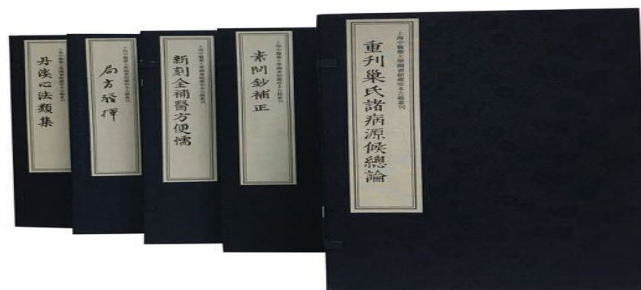 丹溪心法類集
局方發揮
新刻全補醫方便懦
素問鈔補正
重刊巢氏諸病源候總論